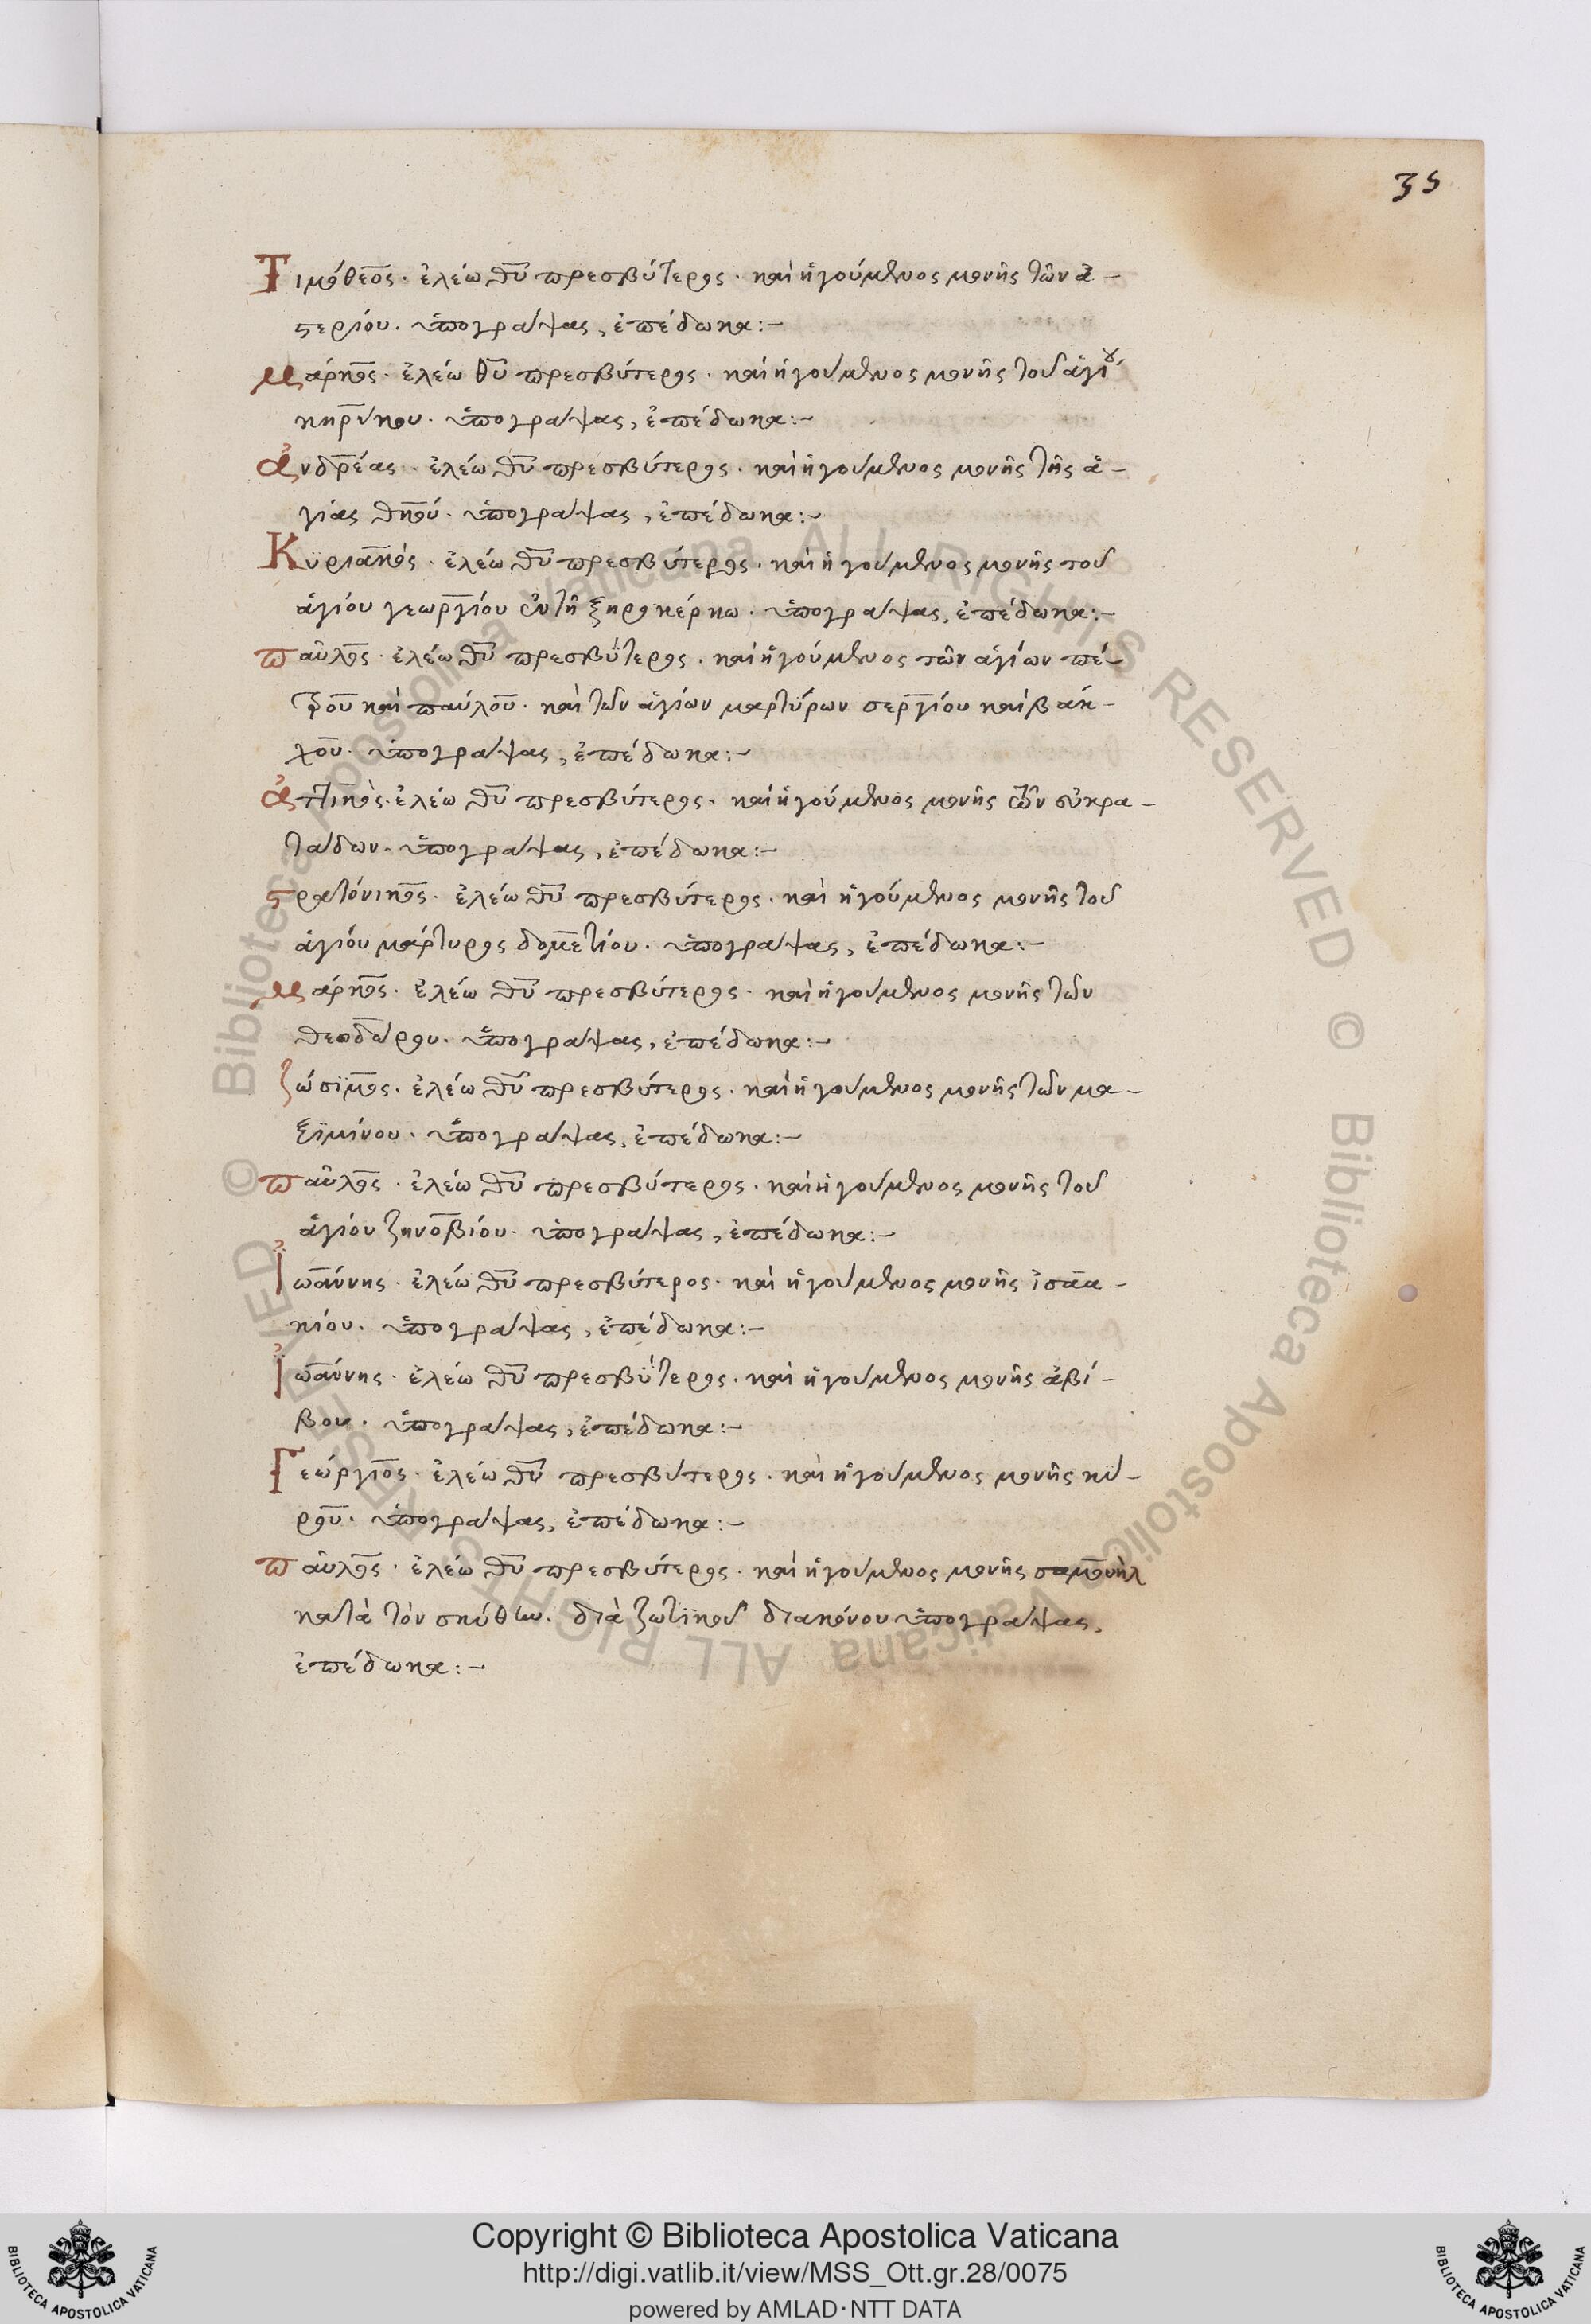 35
Τιμόθεος· ἐλέω θῦ πρεσβύτερος· καὶ ἡγούμενος μονῆς τῶν ἀ-
στερίου. ὑπογράψας, ἐπέδωκα:-
Μάρκος· ἐλέω θῦ πρεσβύτερος· καὶ ἡγούμενος μονῆς τοῦ ἁγίου
κηρύκου. ὑπογράψας, ἐπέδωκα:-
Ἀνδρέας· ἐλέω θῦ πρεσβύτερος· καὶ ἡγούμενος μονῆς τῆς ἁ-
γίας θηκού. ὑπογράψας, ἐπέδωκα:-
Κϋριακὸς· ἐλέω θῦ πρεσβύτερος· καὶ ἡγούμενος μονῆς τοῦ
ἁγίου γεωργίου ἐν τῆ ξηροκέρκω. ὑπογράψας, ἐπέδωκα:-
Παῦλος· ἐλέω θῦ πρεσβύτερος· καὶ ἡγούμενος τῶν ἁγίων πέ-
τρου καὶ παύλου· καὶ τῶν ἁγίων μαρτύρων σεργίου καὶ βάκ-
χου· ὑπογράψας, ἐπέδωκα:-
Ἀττικὸς· ἐλέω θῦ πρεσβύτερος· καὶ ἡγούμενος μονῆς τῶν εὐκρα-
τάδων. ὑπογράψας, ἐπέδωκα:-
Στρατόνικος· ἐλέω θῦ πρεσβύτερος· καὶ ἡγούμενος μονῆς τοῦ
ἁγίου μάρτυρος δομετίου. ὑπογράψας, ἐπέδωκα:-
Μάρκος· ἐλέω θῦ πρεσβύτερος· καὶ ἡγούμενος μονῆς τῶν
θεοδώρου. ὑπογράψας, ἐπέδωκα:-
ζώσϊμος· ἐλέω θῦ πρεσβύτερος· καὶ ἡγούμενος μονῆς τῶν μα-
ξϊμίνου. ὑπογράψας, ἐπέδωκα:-
Παῦλος· ἐλέω θῦ πρεσβύτερος· καὶ ἡγούμενος μονῆς τοῦ
ἁγίου ζηνοβίου. ὑπογράψας, ἐπέδωκα:-
Ἰωάννης· ἐλέω θῦ πρεσβύτερος· καὶ ἡγούμενος μονῆς ἰσαα-
κίου. ὑπογράψας, ἐπέδωκα:-
Ἰωάννης· ἐλέω θῦ πρεσβύτερος· καὶ ἡγούμενος μονῆς ἀβί-
βου. ὑπογράψας, ἐπέδωκα:-
Γεώργιος· ἐλέω θῦ πρεσβύτερος· καὶ ἡγούμενος μονῆς κύ-
ρου. ὑπογράψας, ἐπέδωκα:-
Παῦλος· ἐλέω θῦ πρεσβύτερος· καὶ ἡγούμενος μονῆς σαμουὴλ
κατὰ τὸν σκύθην. διὰ ζωτϊκοῦ διακόνου ὑπογράψας,
ἐπέδωκα:-
© Biblioteca Apostolica Vaticana ALL RIGHTS RESERVED © Biblioteca Apostolica Vaticana ALL RIGHTS RESERVED
Copyright © Biblioteca Apostolica Vaticana
http://digi.vatlib.it/view/MSS_Ott.gr.28/0075
powered by AMLAD·NTT DATA
BIBLIOTECA APOSTOLICA VATICANA
BIBLIOTECA APOSTOLICA VATICANA